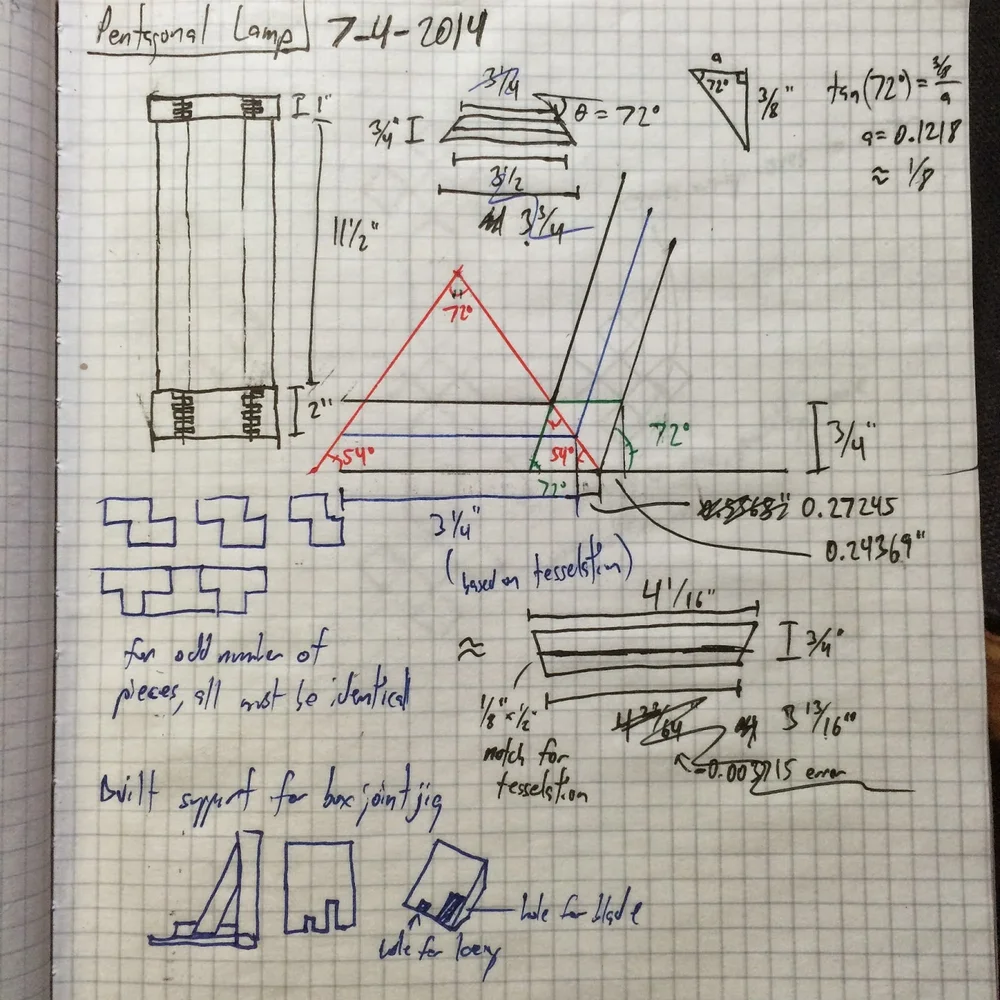 Pentagonal Lamp 7-4-2014
1"
11 1/2"
2"
3 1/4
3/4"
θ = 72°
3 1/2
3 3/4
a
72°
3/8"
tan(72°) = 3/8 / a
a = 0.1218
≈ 1/8
72°
54°
54°
72°
72°
3/4"
3 1/4"
(based on tesselation)
0.27245
0.24369"
for odd number of
pieces, all must be identical
≈
4 1/16"
3/4"
1/8" x 1/2"
notch for
tesselation
4 23/64
3 13/16"
-0.003715 error
Built support for box joint jig
hole for blade
hole for